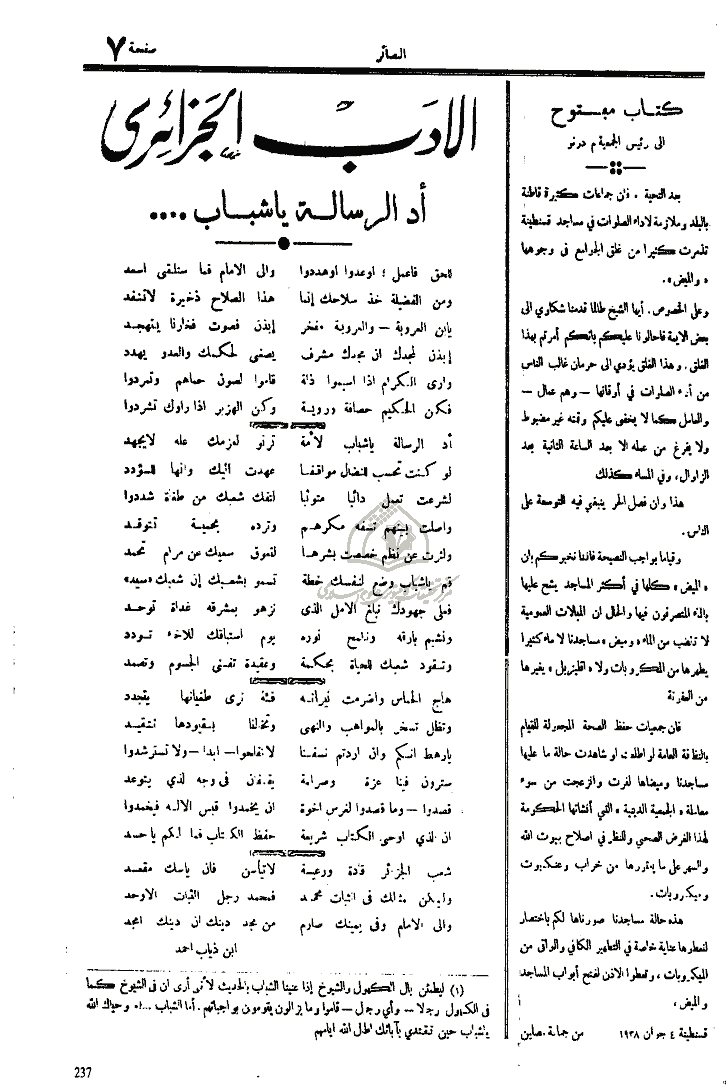 صفحة ٧
البصائر
كتاب مفتوح
الى رئيس الجمعية م دونو
بعد التحية ، فان جماعات كثيرة قاطنة
بالبلد وملازمة لاداء الصلوات في مساجد قسنطينة
تذمرت كثيرا من غلق الجوامع فى وجوهها
« والميض » .
وعلى الخصوص . أيها الشيخ طالما قدمنا شكاوي الى
بعض الايمة فاحالونا عليكم بانكم أمرتم بهذا
الغلق . وهذا الغلق يؤدي الى حرمان غالب الناس
من أداء الصلوات في أوقاتها – وهم عمال –
والعامل كما لا يخفى عليكم وقته غير مضبوط
ولا يفرغ من عمله الا بعد الساعة الثانية بعد
الزاوال ، وفي المساء كذلك
هذا وان فصل الحر ينبغي فيه التوسعة على
الناس .
وقياما بواجب النصيحة فاننا نخبركم بان
« الميض » كلها في أكثر المساجد يشح عليها
بالماء المتصرفون فيها والحال ان المبلات العمومية
لا تنضب من الماء « وميض » مساجدنا لا ماء كثيرا
يطهرها من المكروبات ولا « اقليزيل » يغيرها
من العفونة
فان جمعيات حفظ الصحة المجعولة للقيام
بالنظافة العامة لو اطلعت او شاهدت حالة ما عليها
مساجدنا وميضاها لفرت وانزعجت من سوء
معاملة « الجمعية الدينية » التي أنشاتها الحكومة
لهذا الغرض الصحي والنظر في اصلاح بيوت الله
والسهر على ما يقررها من خراب وعنكبوت
وميكروبات .
هذه حالة مساجدنا صورناها لكم باختصار
لتعطوها عناية خاصة في التطهير الكافي والواقى من
الميكروبات ، وتعطوا الاذن لفتح أبواب المساجد
والميض ،
قسنطينة ٤ جوان ١٩٣٨ من جماعة مصلين
الادب الجزائرى
أد الرسالة ياشباب ....
للحق فاعمل ؛ اوعدوا اوهددوا والى الامام فما ستلقى اسعد
ومن الفضيلة خذ سلاحك إنما هذا السلاح ذخيرة لاتنفد
يابن العروبة – والعروبة مفخر إيذن فصوت فخارنا يتهجد
إيذن لمجدك ان مجدك مشرف يصغى لحكمك والعدو يهدد
وارى الكرام اذا اسيموا ذلة قاموا لصون حماهم وتمردوا
فكن الحكيم حصافة وروية وكن الهزبر اذا راوك تشردوا
أد الرسالة ياشباب لأمة ترنو لعزمك عله لايجهد
لو كنت تحسب للنضال مواقفا عهدت اليك وانها للسؤدد
لشرعت تعمل دائبا متوثبا لتفك شعبك من طغاة شددوا
واصلت بينهم تسفه مكرهم وترده بحمية تتوقد
ولثرت عن نظم خصصت بشرها لتعوق سعيك عن مرام تحمد
قم ياشباب وضع لنفسك خطة تسمو بشعبك إن شعبك «سيد»
فعلى جهودك نبلغ الامل الذى نزهو بمشرقه غداة توحد
ونشيم بارقه ونلمح نوره يوم استباقك للاخاء تودد
وتقود شعبك للحياة بحكمة وعقيدة تفنى الجسوم وتصمد
هاج الحماس واضرمت نيرانه فئة نرى طغيانها يتجدد
وتظل تسخر بالمواهب والنهى وتخالنا بقيودها نتقيد
يارهط انكم وان اردتم نسفنا لانفلحوا – ابدا – ولا تسترشدوا
سترون فينا عزة وصرامة يقفان فى وجه لذي يتوعد
قصدوا – وما قصدوا لغرس اخوة ان يخمدوا قبس الاله فيخمدوا
ان لذي اوحى الكتاب شريعة حفظ الكتاب فما لكم ياحمد
شعب الجزائر قادة ورعية لاتيأسن فان ياسك مقعد
وليكن مثالك فى الثبات محمد فمحمد رجل الثبات الاوحد
والى الامام وفى يمينك صارم من مجد دينك ان دينك امجد
ابن ذياب احمد
(١) ليطمئن بال الكهول والشيوخ إذا عنينا الشباب بالحديث لأنى أرى ان فى الشيوخ كما
فى الكهول رجلا – وأي رجل – قاموا وما يزالون يقومون بواجباتهم . أما الشباب ... وحياك الله
ياشباب حين تقتدي بآبائك اطال الله ايامهم
237